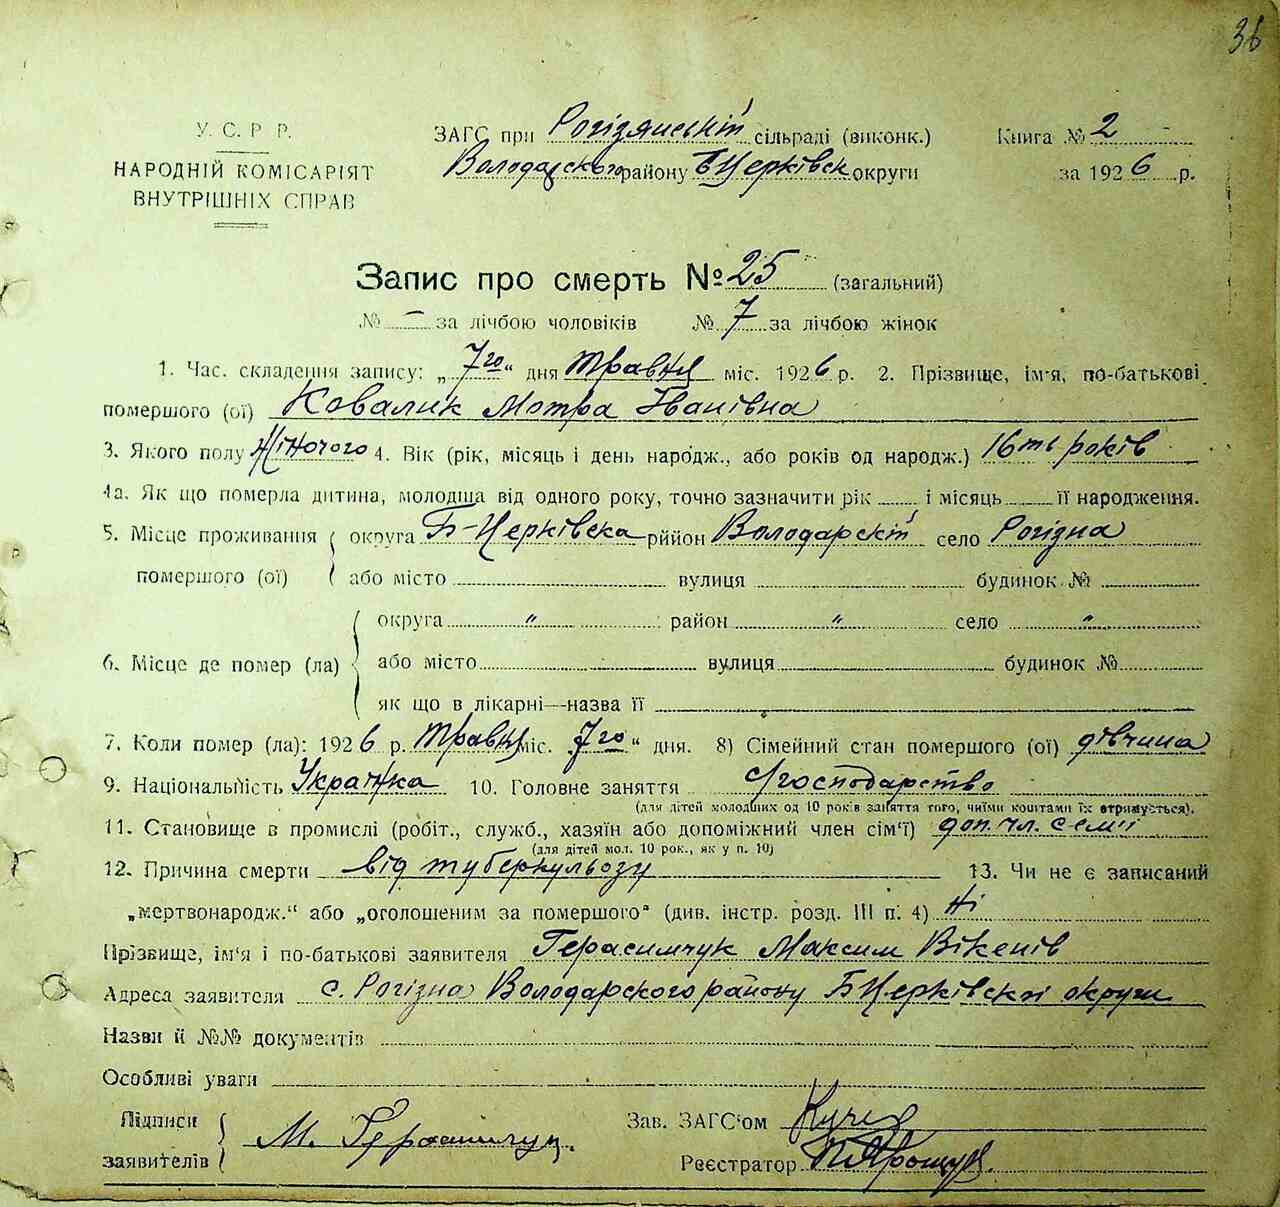 36
У. С. Р. Р.
НАРОДНІЙ КОМІСАРІЯТ
ВНУТРІШНІХ СПРАВ
ЗАГС при Рогізянській сільраді (виконк.)
Володарского району БЦерківск округи
Книга № 2
за 1926 р.
Запис про смерть № 25 (загальний)
№ — за лічбою чоловіків № 7 за лічбою жінок
1. Час складення запису: „7го“ дня Травня міс. 1926 р. 2. Прізвище, ім'я, по-батькові
помершого (ої) Ковалик Мотра Іванівна
3. Якого полу Жіночого 4. Вік (рік, місяць і день народж., або років од народж.) 16ть років
4а. Як що померла дитина, молодша від одного року, точно зазначити рік і місяць її народження.
5. Місце проживання округа Б-Церківска рййон Володарскій село Рогізна
помершого (ої) або місто вулиця будинок №
округа " район " село "
6. Місце де помер (ла) або місто вулиця будинок №
як що в лікарні—назва її
7. Коли помер (ла): 1926 р. Травня міс. 7го“ дня. 8) Сімейний стан помершого (ої) дівчина
9. Національність Украінка 10. Головне заняття с/господарство
(для дітей молодших од 10 років заняття того, чиїми коштами їх втримується).
11. Становище в промислі (робіт., служб., хазяїн або допоміжний член сім'ї) доп. чл. семіі
(для дітей мол. 10 рок., як у п. 10)
12. Причина смерти від туберкульозу 13. Чи не є записаний
„мертвонародж.“ або „оголошеним за помершого“ (див. інстр. розд. III п. 4) Ні
Прізвище, ім'я і по-батькові заявителя Герасимчук Максим Вікенів
Адреса заявителя с. Рогізна Володарского району БЦерківскоі округи
Назви й №№ документів
Особливі уваги
Підписи
заявителів М. Герасимчук.
Зав. ЗАГС'ом
Реєстратор